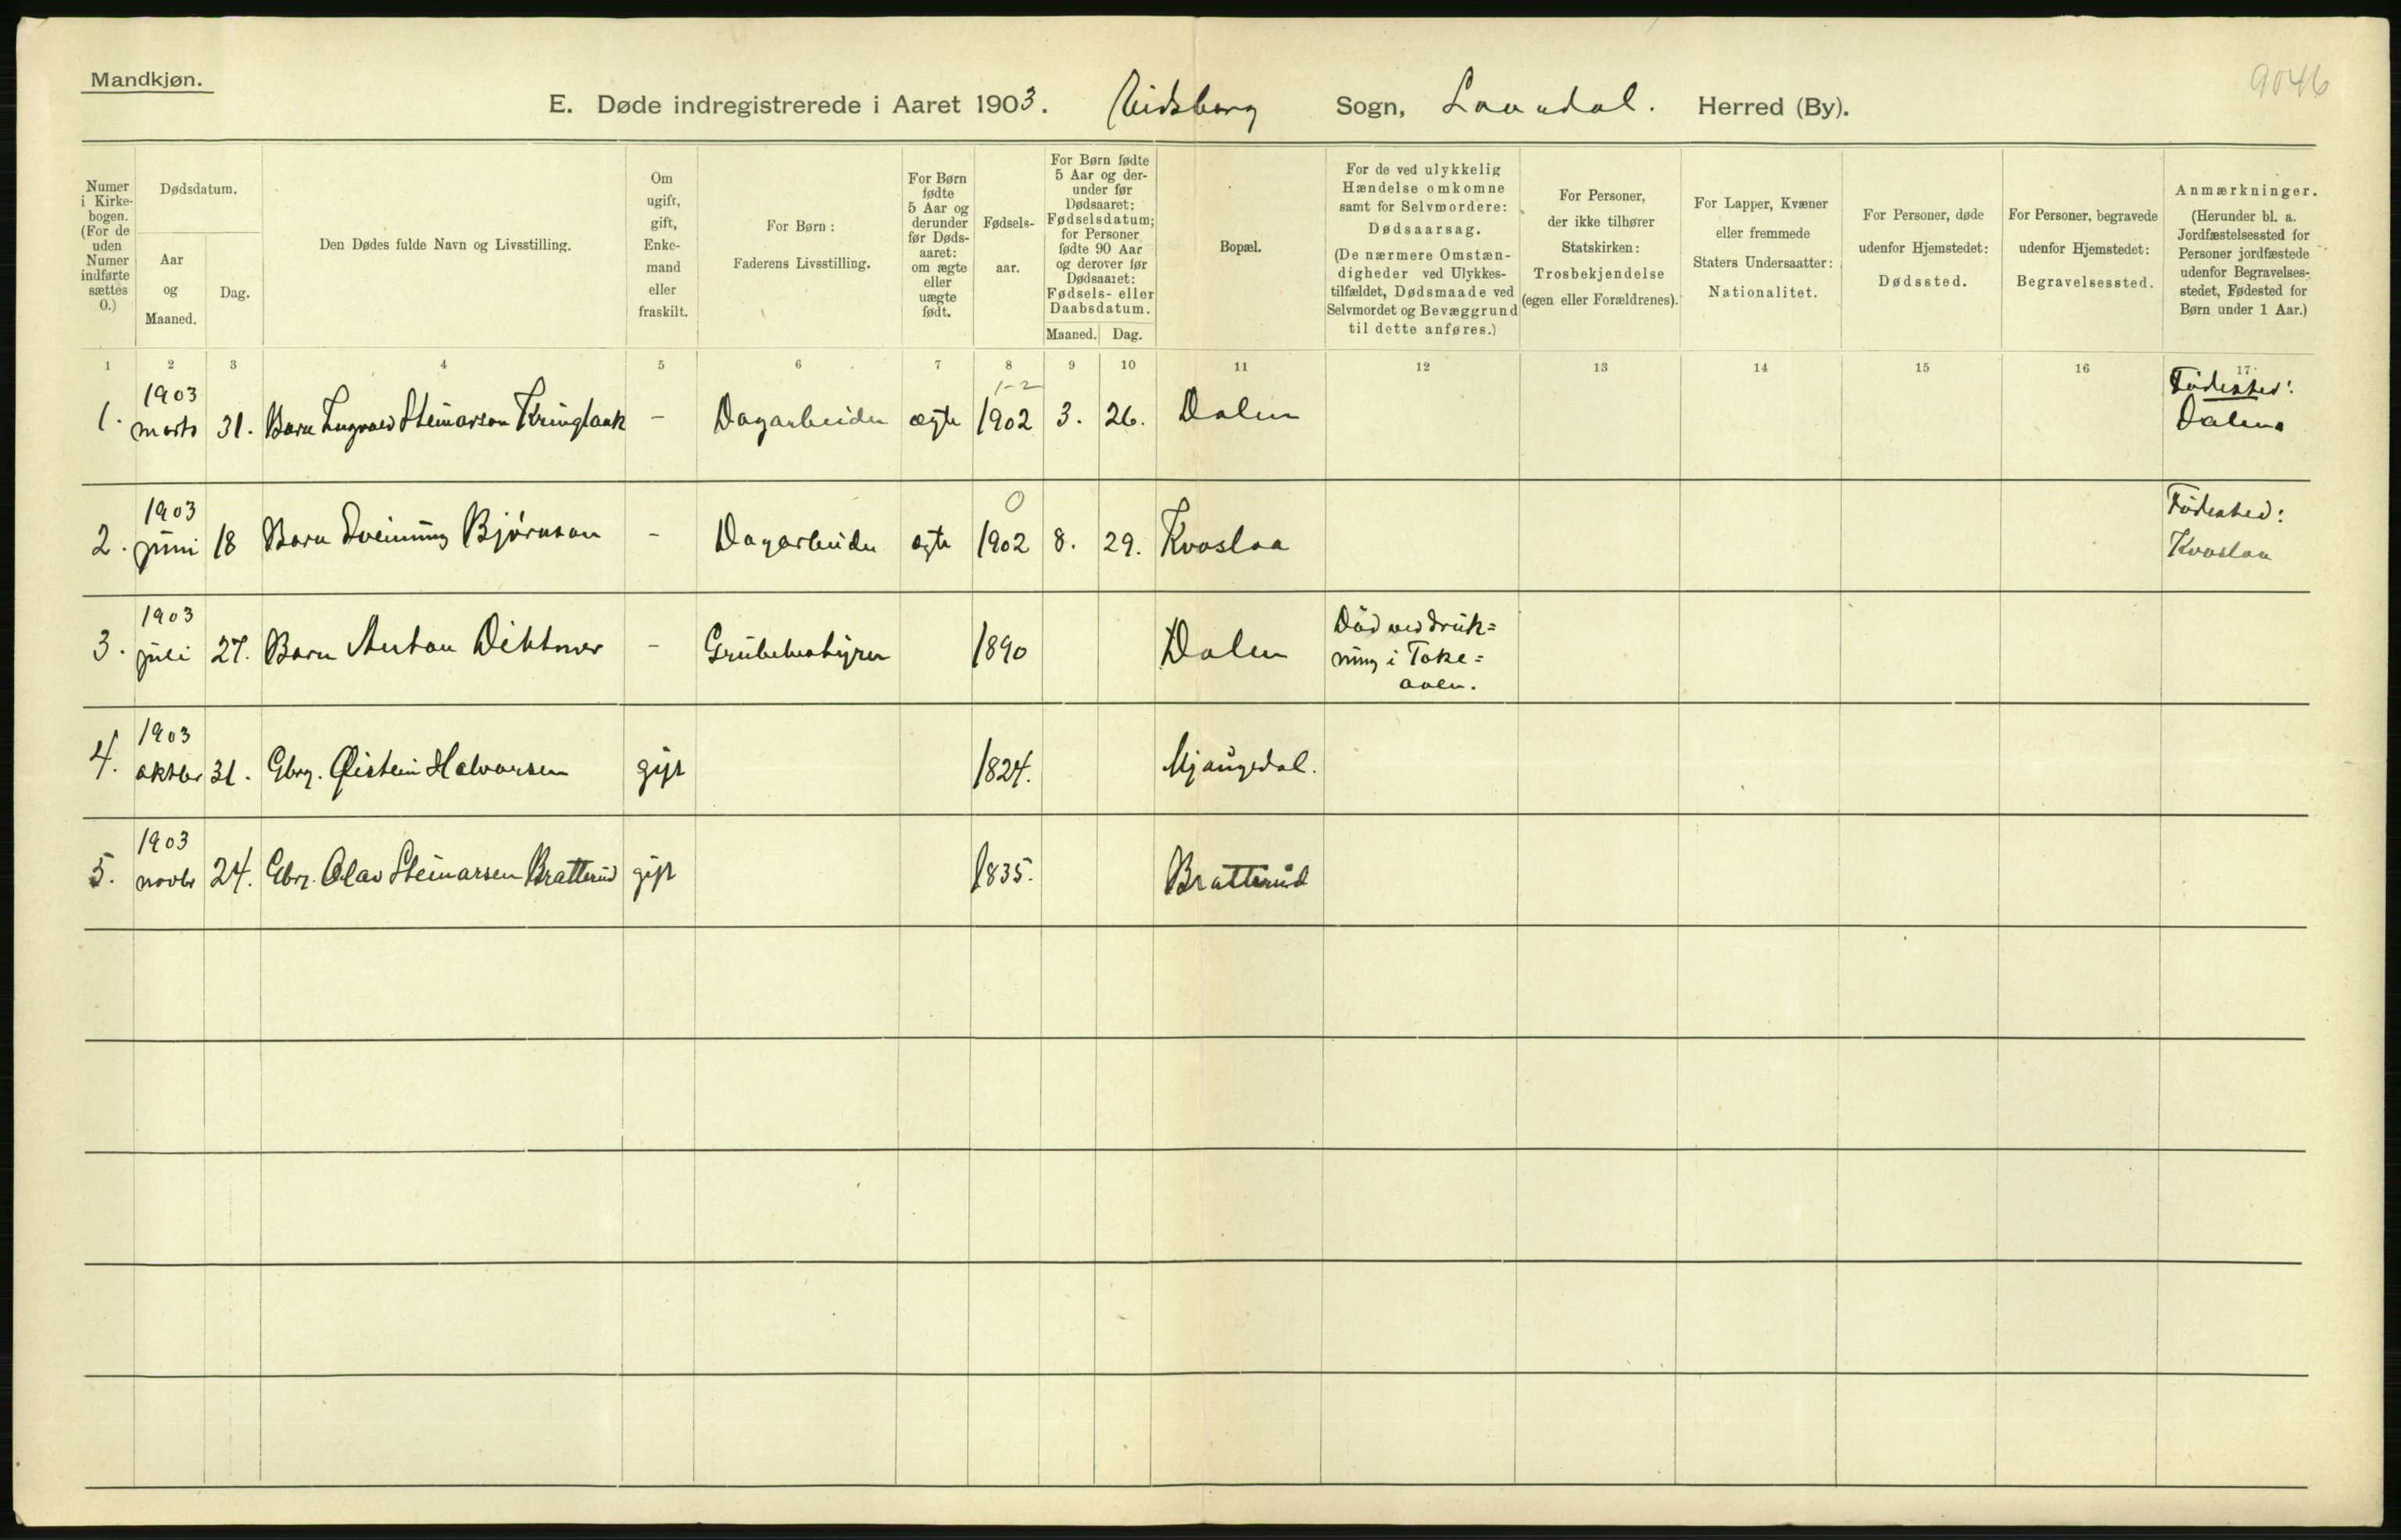 Mandkjøn.
9046
E. Døde indregistrerede i Aaret 1903. Eidsborg Sogn, Laurdal. Herred (By).
Numer i Kirkebogen. (For de uden Numer indførte sættes 0.)
Dødsdatum.
Aar og Maaned.
Dag.
Den Dødes fulde Navn og Livsstilling.
Om ugift, gift, Enkemand eller fraskilt.
For Børn: Faderens Livsstilling.
For Børn fødte 5 Aar og derunder før Dødsaaret: om ægte eller uægte født.
Fødselsaar.
For Børn fødte 5 Aar og derunder før Dødsaaret: Fødselsdatum; for Personer fødte 90 Aar og derover før Dødsaaret: Fødsels- eller Daabsdatum.
Maaned. Dag.
Bopæl.
For de ved ulykkelig Hændelse omkomne samt for Selvmordere: Dødsaarsag. (De nærmere Omstændigheder ved Ulykkestilfældet, Dødsmaade ved Selvmordet og Bevæggrund til dette anføres.)
For Personer, der ikke tilhører Statskirken: Trosbekjendelse (egen eller Forældrenes).
For Lapper, Kvæner eller fremmede Staters Undersaatter: Nationalitet.
For Personer, døde udenfor Hjemstedet: Dødssted.
For Personer, begravede udenfor Hjemstedet: Begravelsessted.
Anmærkninger. (Herunder bl. a. Jordfæstelsessted for Personer jordfæstede udenfor Begravelsesstedet, Fødested for Børn under 1 Aar.)
1 2 3 4 5 6 7 8 9 10 11 12 13 14 15 16 17
1. 1903 marts 31. Barn Ingvald Steinarson - Dagarbeider ægte 1-2 1902 3. 26. Dalen Födested: Dalen
2. 1903 juni 18 Barn Sveinung Bjørnson - Dagarbeider ægte 0 1902 8. 29. Kvaslaa Födested: Kvaslaa
3. 1903 juli 27. Barn Anton Dittmer - Grubebestyrer 1890 Dalen Död ved drukning i Tokeaaen.
4. 1903 oktbr 31. Gbrg. Øistein Halvorsen gift 1824. Mjaugedal.
5. 1903 novbr 24. Gbrg. Olav Steinarsen Bratterud gift 1835. Bratterud